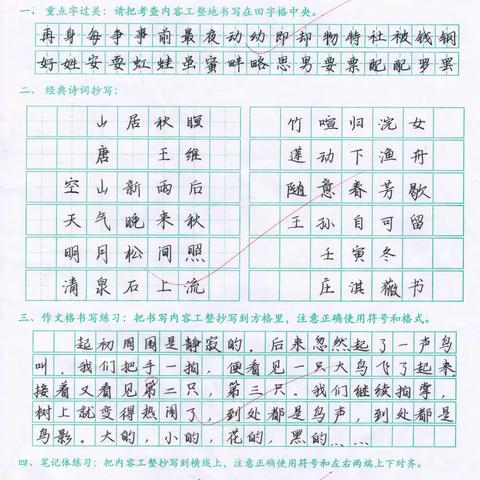 一、 重点字过关：请把考查内容工整地书写在田字格中央。
再身每争事前最夜动动即却物特社被钱钢
好姓安要虹蛙虽蜜畔略思男要票配配罗罢
二、 经典诗词抄写：
山居秋暝
唐 王维
空山新雨后
天气晚来秋
明月松间照
清泉石上流
竹喧归浣女
莲动下渔舟
随意春芳歇
王孙自可留
壬寅冬
庄淇薇书
三、作文格书写练习：把书写内容工整抄写到方格里，注意正确使用符号和格式。
起初周围是静寂的。后来忽然起了一声鸟
叫。我们把手一拍，便看见一只大鸟飞了起来，
接着又看见第二只，第三只。我们继续拍掌，
树上就变得热闹了，到处都是鸟声，到处都是
鸟影。大的，小的，花的，黑的……
四、笔记体练习：把内容工整抄写到横线上，注意正确使用符号和左右两端上下对齐。